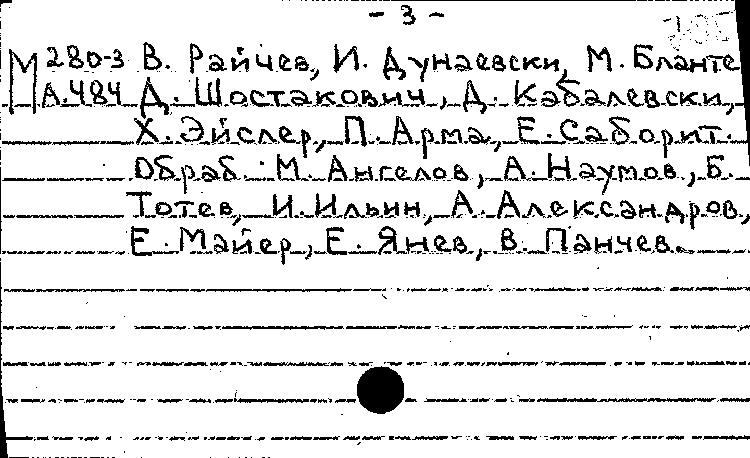 - 3 -
М 280-3 В. Райчев, И. Дунаевски, М. Бланте
А.484 Д. Шостакович, Д. Кабалевски,
Х. Эйслер, П. Арма, Е. Саборит.
Обраб. М. Ангелов, А. Наумов, Б.
Тотев, И. Ильин, А. Александров,
Е. Майер, Е. Янев, В. Панчев.